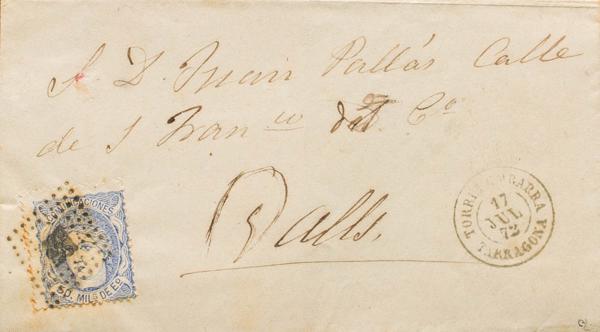 S. D. Juan Pallás Calle
de S Fran^co del C^o
Valls.
COMUNICACIONES
50. MIL^s DE E^o.
TORREDEMBARRA
17
JUL
72
TARRAGONA